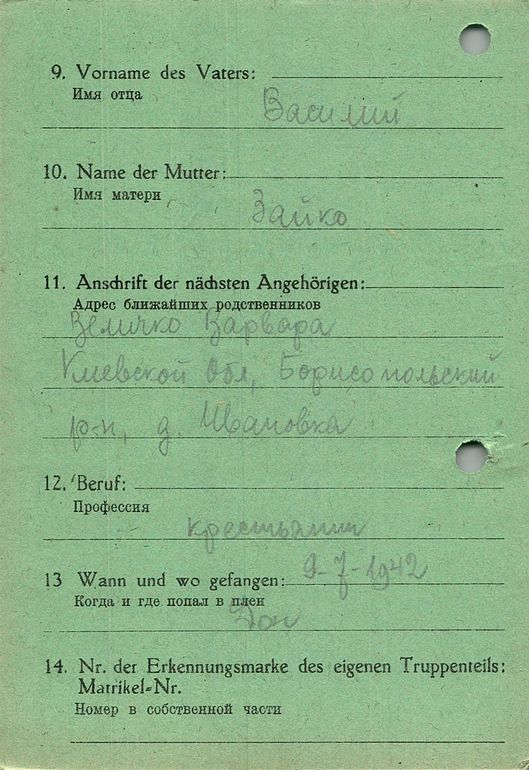 9. Vorname des Vaters:
Имя отца
Василий
10. Name der Mutter:
Имя матери
Зайко
11. Anschrift der nächsten Angehörigen:
Адрес ближайших родственников
Величко Варвара
Киевской Обл, Борисопольский
р-н, д. Ивановка
12. Beruf:
Профессия
крестьянин
13 Wann und wo gefangen: 9-7-1942
Когда и где попал в плен
Дон
14. Nr. der Erkennungsmarke des eigenen Truppenteils:
Matrikel-Nr.
Номер в собственной части